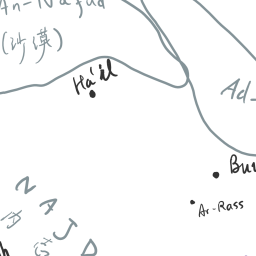 An-Nafud
(沙漠)
Ha'il
Ad-
Bur
Ar-Rass
NAJD
内